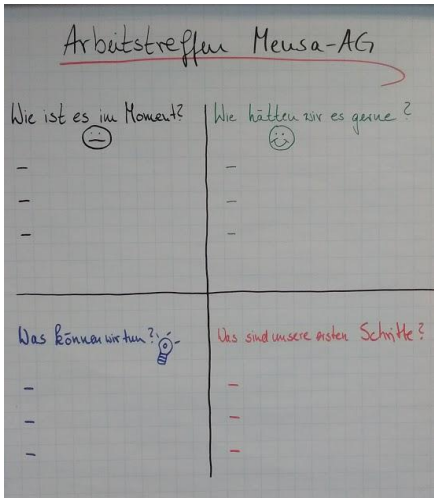 Arbeitstreffen Mensa-AG
Wie ist es im Moment?
-
-
-
Wie hätten wir es gerne?
-
-
-
Was können wir tun?
-
-
-
Was sind unsere ersten Schritte?
-
-
-